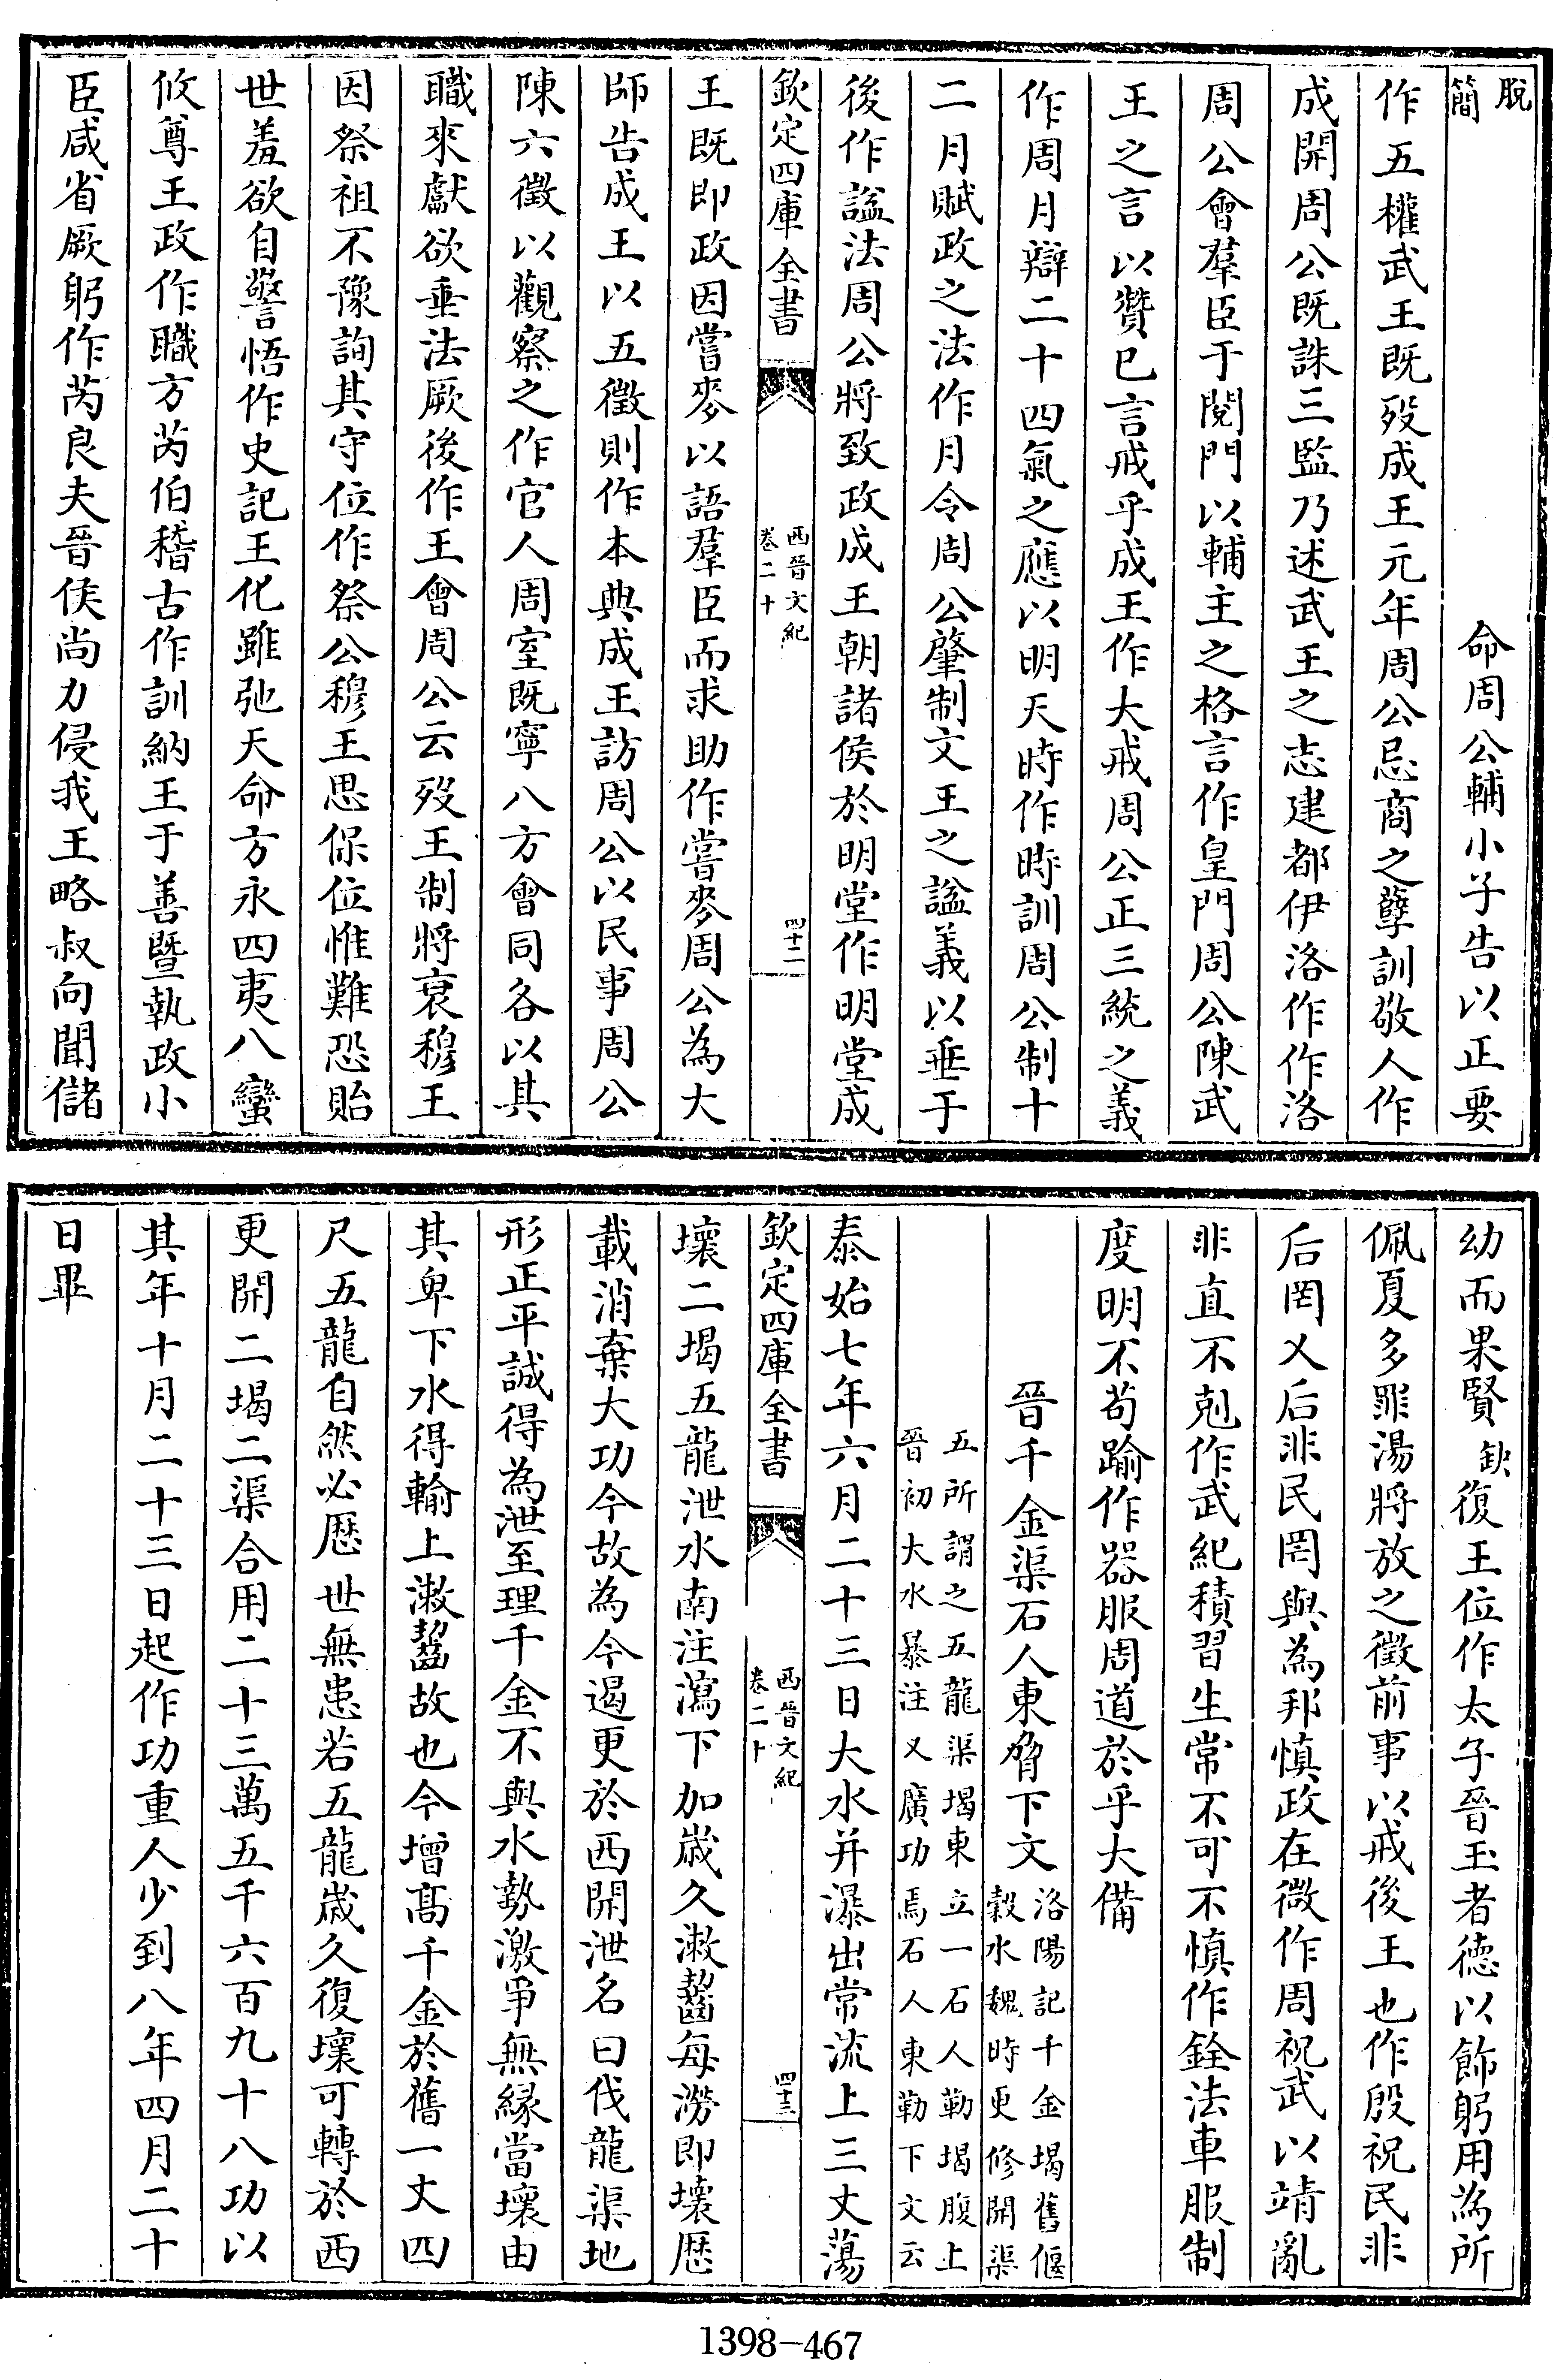 脫簡　命周公輔小子告以正要
作五權武王既歿成王元年周公忌商之孽訓敬人作
成開周公既誅三監乃述武王之志建都伊洛作作洛
周公會羣臣于閎門以輔主之格言作皇門周公陳武
王之言以贊已言戒乎成王作大戒周公正三統之義
作周月辯二十四氣之應以明天時作時訓周公制十
二月賦政之法作月令周公肇制文王之諡義以垂于
後作諡法周公將致政成王朝諸侯於明堂作明堂成
欽定四庫全書　西晉文紀卷二十　四十二
王既即政因嘗麥以語羣臣而求助作嘗麥周公為大
師告成王以五徵則作本典成王訪周公以民事周公
陳六徵以觀察之作官人周室既寧八方會同各以其
職來獻欲垂法厥後作王會周公云歿王制將衰穆王
因祭祖不豫詢其守位作祭公穆王思保位惟難恐貽
世羞欲自警悟作史記王化雖弛天命方永四夷八蠻
攸尊王政作職方芮伯稽古作訓納王于善暨執政小
臣咸省厥躬作芮良夫晉侯尚力侵我王略叔向聞儲
幼而果賢缺復王位作太子晉王者德以飾躬用為所
佩夏多罪湯將放之徵前事以戒後王也作殷祝民非
后罔乂后非民罔與為邦慎政在微作周祝武以靖亂
非直不剋作武紀積習生常不可不慎作銓法車服制
度明不苟踰作器服周道於乎大備
晉千金渠石人東脅下文　洛陽記千金堨舊偃
穀水魏時更修開渠
五所謂之五龍渠堨東立一石人勒堨腹上
晉初大水暴注又廣功焉石人東勒下文云
泰始七年六月二十三日大水并瀑出常流上三丈蕩
欽定四庫全書　西晉文紀卷二十　四十三
壞二堨五龍泄水南注瀉下加歲久漱齧每澇即壞歷
載消棄大功今故為今遏更於西開泄名曰伐龍渠地
形正平誠得為泄至理千金不與水勢激爭無緣當壞由
其卑下水得輸上漱齧故也今增高千金於舊一丈四
尺五龍自然必歷世無患若五龍歲久復壞可轉於西
更開二堨二渠合用二十三萬五千六百九十八功以
其年十月二十三日起作功重人少到八年四月二十
日畢
1398-467